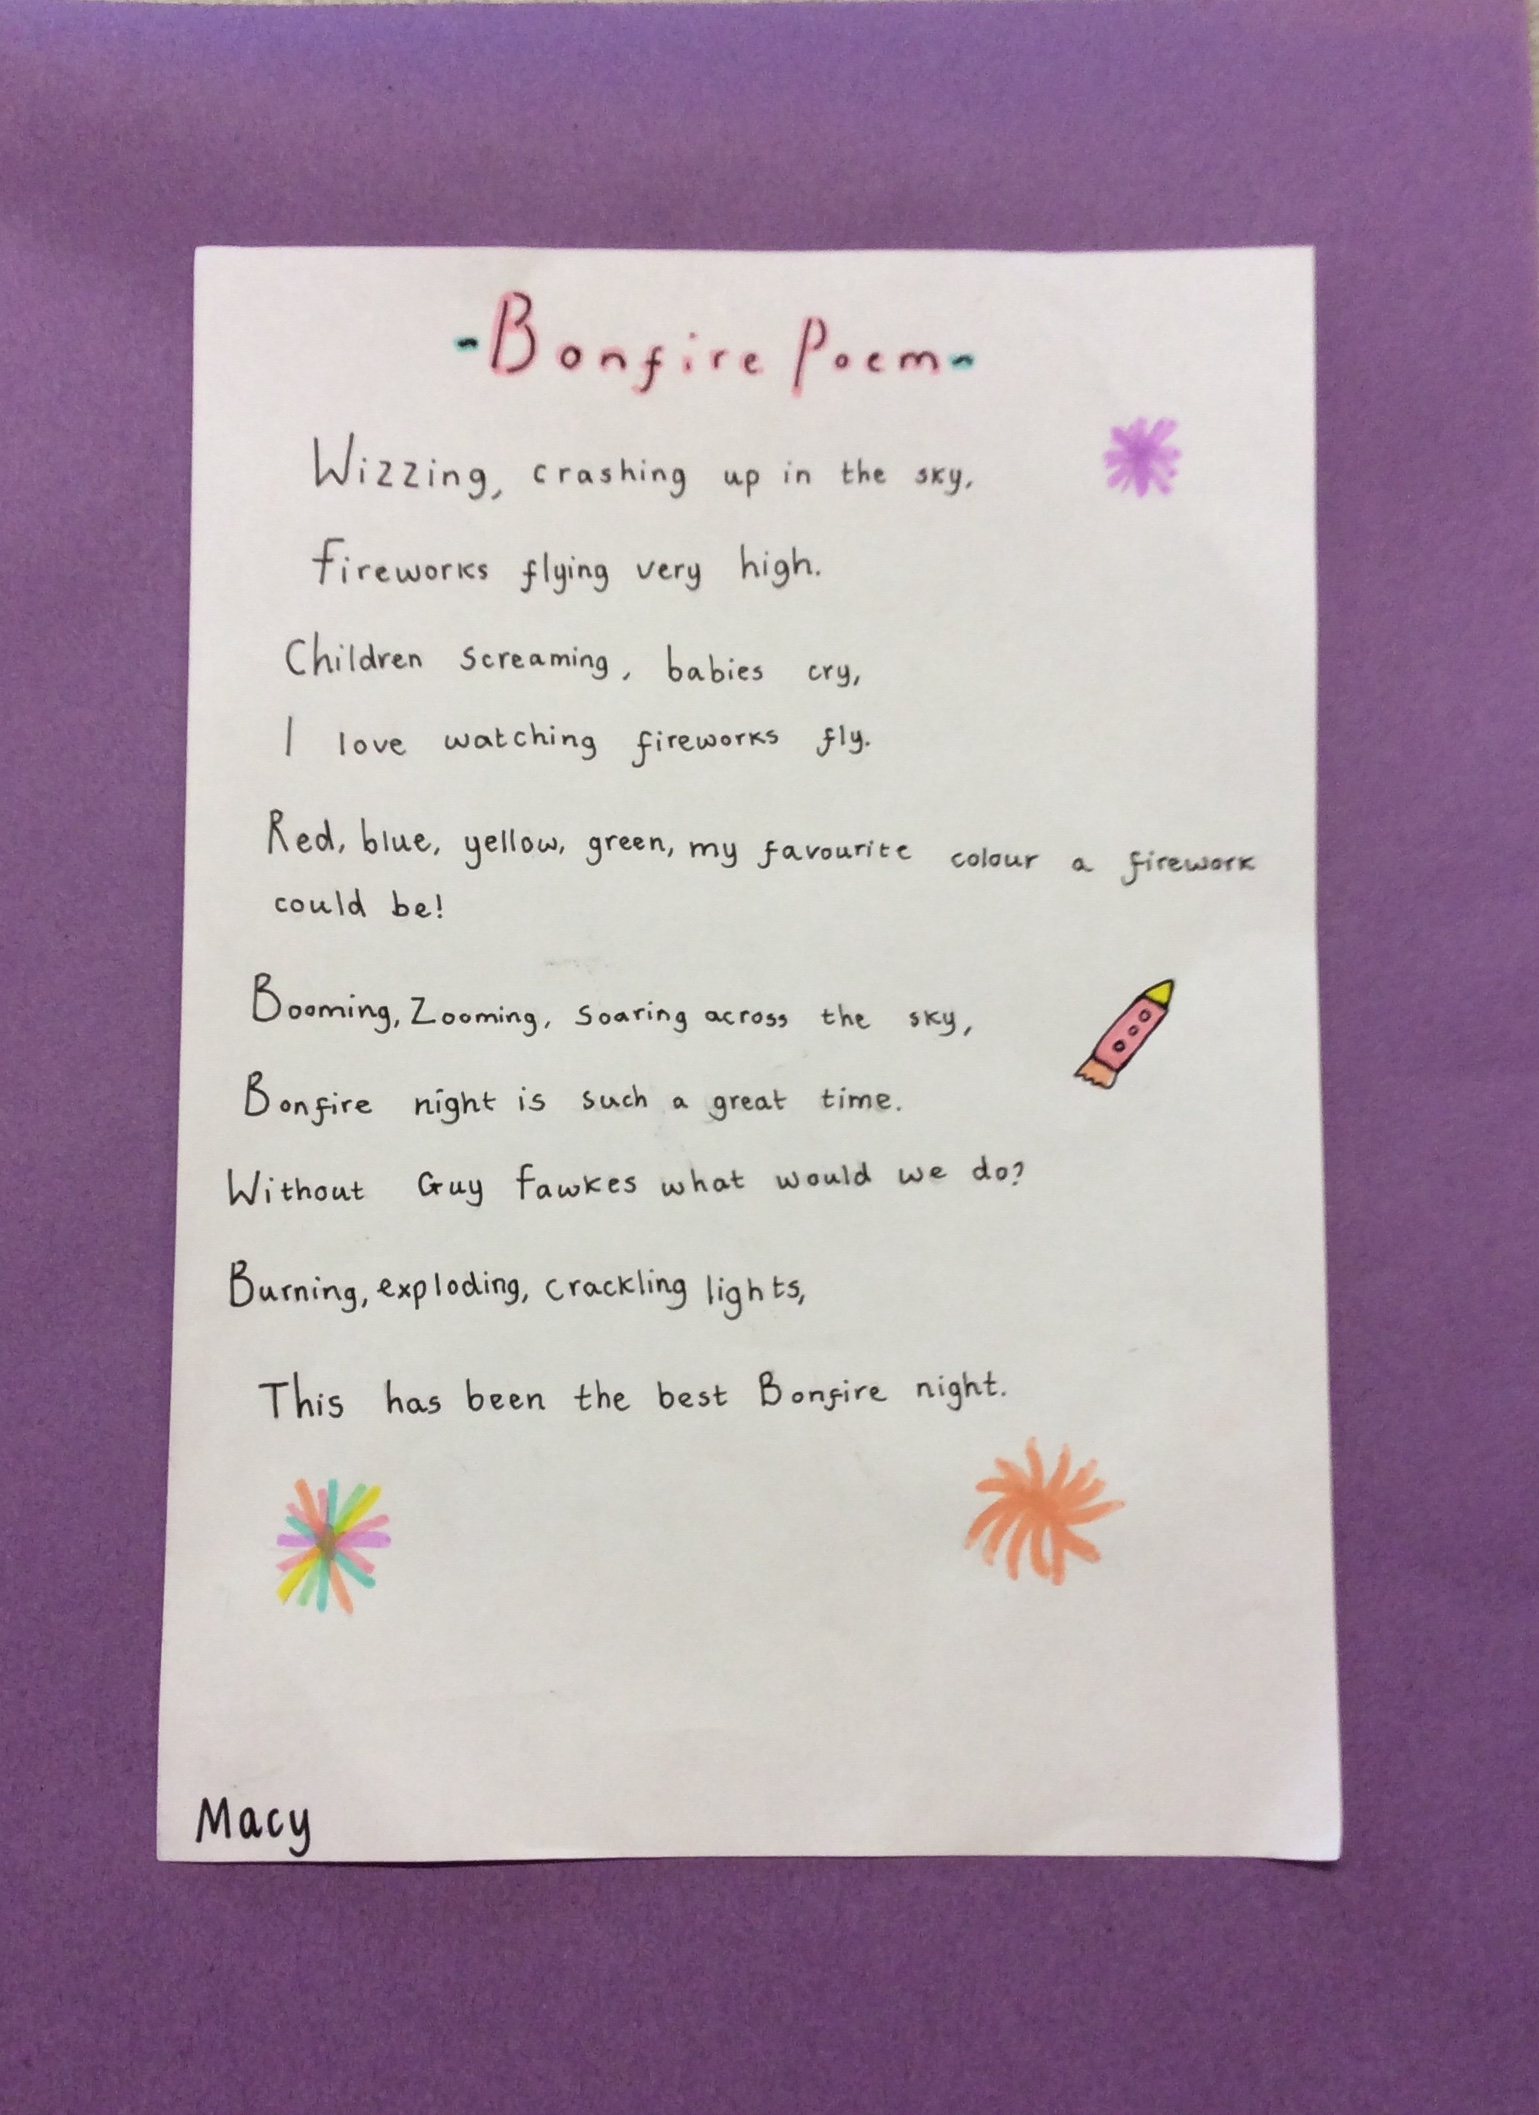 -Bonfire Poem-
Wizzing, crashing up in the sky,
fireworks flying very high.
Children screaming, babies cry,
I love watching fireworks fly.
Red, blue, yellow, green, my favourite colour a firework
could be!
Booming, Zooming, soaring across the sky,
Bonfire night is such a great time.
Without Guy fawkes what would we do?
Burning, exploding, crackling lights,
This has been the best Bonfire night.
Macy